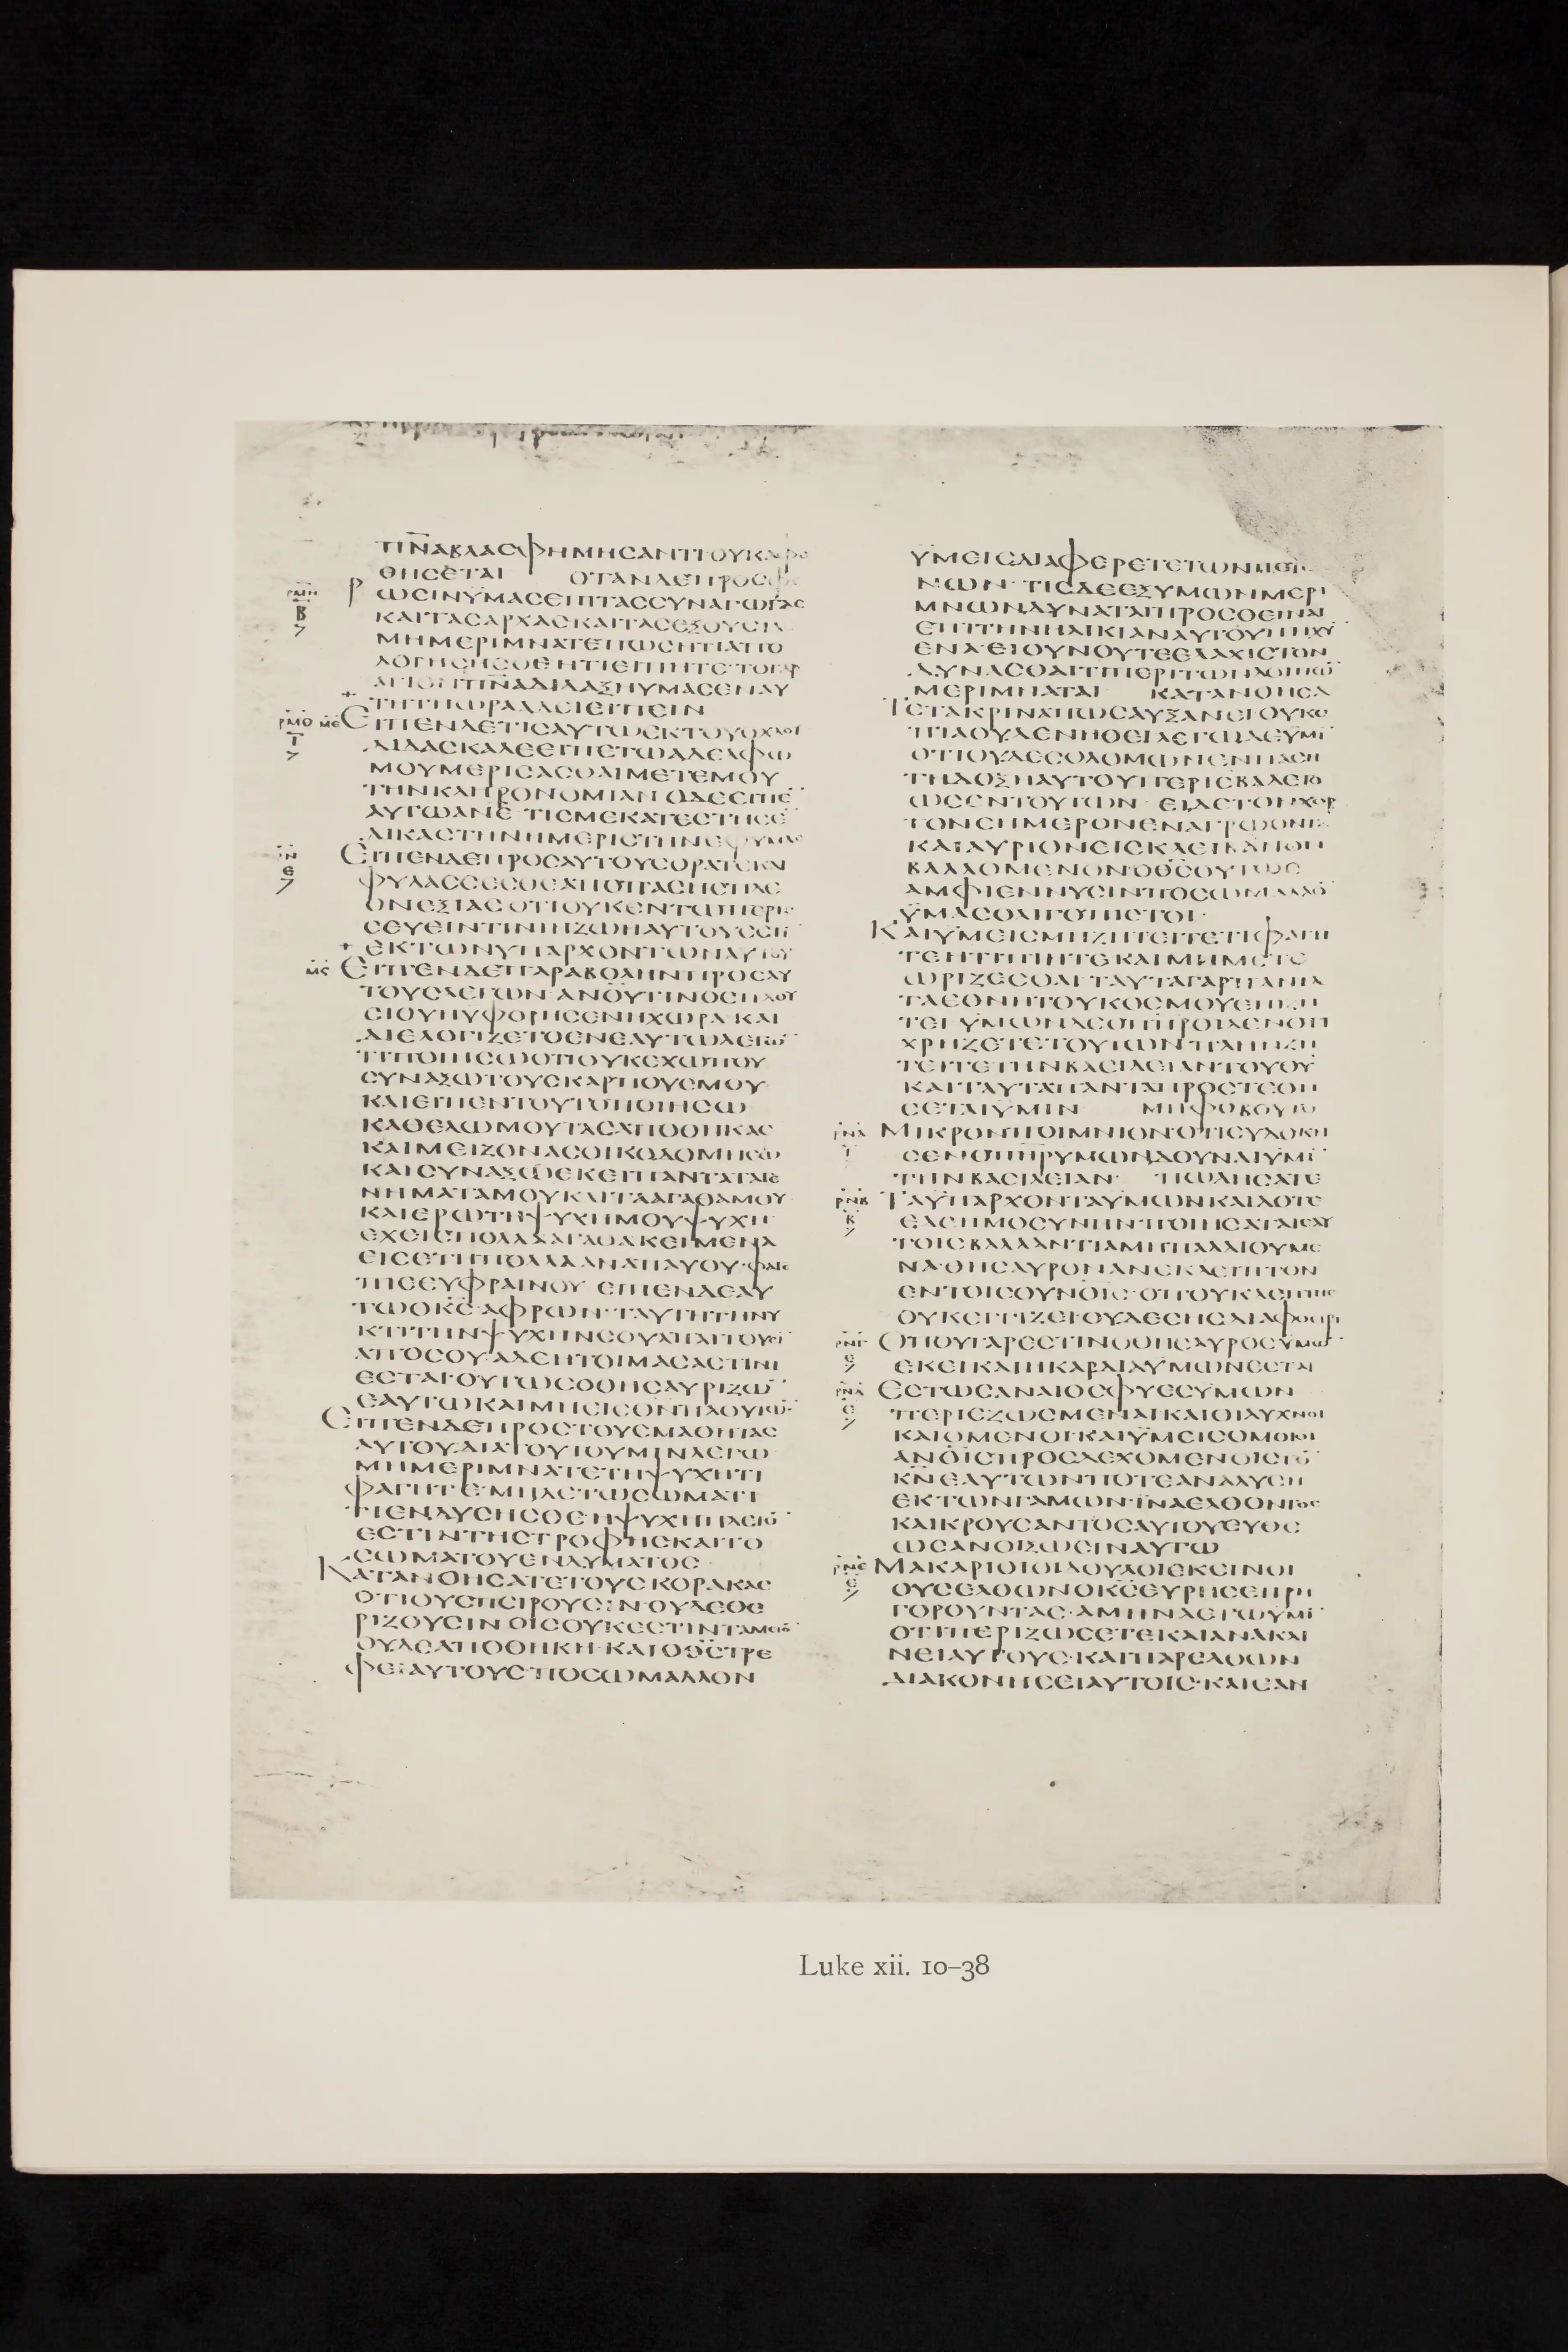 ΤΙΠΝΑΒΛΑϹΦΗΜΗϹΑΝΤΙΟΥΚΑΦΕ
ΘΗϹΕΤΑΙ ΟΤΑΝΔΕΠΡΟϹΦΕ
ΡΩϹΙΝΥΜΑϹΕΠΙΤΑϹϹΥΝΑΓΩΓΑϹ
ΚΑΙΤΑϹΑΡΧΑϹΚΑΙΤΑϹΕΞΟΥϹΙΑϹ
ΜΗΜΕΡΙΜΝΑΤΕΠΩϹΗΤΙΑΠΟ
ΛΟΓΗϹΗϹΘΕΗΤΙΕΙΠΗΤΕ ΤΟΓΑΡ
ΑΓΙΟΝΠΝΑΔΙΔΑΞΗΥΜΑϹΕΝΑΥ
ΤΗΤΗΩΡΑΑΔΕΙΕΙΠΕΙΝ
ΡΜΘ ΜΕ ΕΙΠΕΝΔΕΤΙϹΑΥΤΩΕΚΤΟΥΟΧΛΟΥ
ΔΙΔΑϹΚΑΛΕΕΙΠΕΤΩΑΔΕΛΦΩ
ΜΟΥΜΕΡΙϹΑϹΘΑΙΜΕΤΕΜΟΥ
ΤΗΝΚΛΗΡΟΝΟΜΙΑΝ ΟΔΕΕΙΠΕ
ΑΥΤΩΑΝΕ ΤΙϹΜΕΚΑΤΕϹΤΗϹΕ
ΔΙΚΑϹΤΗΝΗΜΕΡΙϹΤΗΝΕΦΥΜΑϹ
ΕΙΠΕΝΔΕΠΡΟϹΑΥΤΟΥϹΟΡΑΤΕΚΑΙ
ΦΥΛΑϹϹΕϹΘΕΑΠΟΠΑϹΗϹΠΛΕ
ΟΝΕΞΙΑϹ ΟΤΙΟΥΚΕΝΤΩΠΕΡΙϹ
ϹΕΥΕΙΝΤΙΝΙΗΖΩΗΑΥΤΟΥΕϹΤΙ
ΕΚΤΩΝΥΠΑΡΧΟΝΤΩΝΑΥΤΟΥ
ΜϚ ΕΙΠΕΝΔΕΠΑΡΑΒΟΛΗΝΠΡΟϹΑΥ
ΤΟΥϹΛΕΓΩΝ ΑΝΟΥΤΙΝΟϹΠΛΟΥ
ϹΙΟΥΗΥΦΟΡΗϹΕΝΗΧΩΡΑ ΚΑΙ
ΔΙΕΛΟΓΙΖΕΤΟΕΝΕΑΥΤΩΛΕΓΩ
ΤΙΠΟΙΗϹΩΟΤΙΟΥΚΕΧΩΠΟΥ
ϹΥΝΑΞΩΤΟΥϹΚΑΡΠΟΥϹΜΟΥ
ΚΑΙΕΙΠΕΝΤΟΥΤΟΠΟΙΗϹΩ
ΚΑΘΕΛΩΜΟΥΤΑϹΑΠΟΘΗΚΑϹ
ΚΑΙΜΕΙΖΟΝΑϹΟΙΚΟΔΟΜΗϹΩ
ΚΑΙϹΥΝΑΞΩΕΚΕΙΠΑΝΤΑΤΑΓΕ
ΝΗΜΑΤΑΜΟΥΚΑΙΤΑΑΓΑΘΑΜΟΥ
ΚΑΙΕΡΩΤΗΨΥΧΗΜΟΥΨΥΧΗ
ΕΧΕΙϹΠΟΛΛΑΑΓΑΘΑΚΕΙΜΕΝΑ
ΕΙϹΕΤΗΠΟΛΛΑΑΝΑΠΑΥΟΥ·ΦΑΓΕ
ΠΙΕΕΥΦΡΑΙΝΟΥ ΕΙΠΕΝΔΕΑΥ
ΤΩΟΘϹ·ΑΦΡΩΝ·ΤΑΥΤΗΤΗΝΥ
ΚΤΙΤΗΝΨΥΧΗΝϹΟΥΑΠΑΙΤΟΥϹΙ
ΑΠΟϹΟΥ·ΑΔΕΗΤΟΙΜΑϹΑϹΤΙΝΙ
ΕϹΤΑΙ·ΟΥΤΩϹΟΘΗϹΑΥΡΙΖΩ
ΕΑΥΤΩΚΑΙΜΗΕΙϹΘΝΠΛΟΥΤΩ
ΕΙΠΕΝΔΕΠΡΟϹΤΟΥϹΜΑΘΗΤΑϹ
ΑΥΤΟΥ·ΔΙΑΤΟΥΤΟΥΜΙΝΛΕΓΩ
ΜΗΜΕΡΙΜΝΑΤΕΤΗΨΥΧΗΤΙ
ΦΑΓΗΤΕ·ΜΗΔΕΤΩϹΩΜΑΤΙ
ΤΙΕΝΔΥϹΗϹΘΕ·ΗΨΥΧΗΠΛΕΙΟ
ΕϹΤΙΝΤΗϹΤΡΟΦΗϹΚΑΙΤΟ
ϹΩΜΑΤΟΥΕΝΔΥΜΑΤΟϹ
ΚΑΤΑΝΟΗϹΑΤΕΤΟΥϹΚΟΡΑΚΑϹ
ΟΤΙΟΥϹΠΕΙΡΟΥϹΙΝ·ΟΥΔΕΘΕ
ΡΙΖΟΥϹΙΝ·ΟΙϹΟΥΚΕϹΤΙΝΤΑΜΕΙΟ
ΟΥΔΕΑΠΟΘΗΚΗ·ΚΑΙΟΘϹΤΡΕ
ΦΕΙΑΥΤΟΥϹ·ΠΟϹΩΜΑΛΛΟΝ
ΥΜΕΙϹΔΙΑΦΕΡΕΤΕΤΩΝΠΕΤΙ
ΝΩΝ·ΤΙϹΔΕΕΞΥΜΩΝΜΕΡΙ
ΜΝΩΝΔΥΝΑΤΑΙΠΡΟϹΘΕΙΝΑΙ
ΕΠΙΤΗΝΗΛΙΚΙΑΝΑΥΤΟΥΠΗΧΥ
ΕΝΑ·ΕΙΟΥΝΟΥΤΕΕΛΑΧΙϹΤΟΝ
ΔΥΝΑϹΘΑΙΤΙΠΕΡΙΤΩΝΛΟΙΠΩ
ΜΕΡΙΜΝΑΤΑΙ ΚΑΤΑΝΟΗϹΑ
ΤΕΤΑΚΡΙΝΑΠΩϹΑΥΞΑΝΕΙ·ΟΥΚΟ
ΠΙΑΟΥΔΕΝΗΘΕΙΛΕΓΩΔΕΥΜΙ
ΟΤΙΟΥΔΕϹΟΛΟΜΩΝΕΝΠΑϹΗ
ΤΗΔΟΞΗΑΥΤΟΥΠΕΡΙΕΒΑΛΕΤΟ
ΩϹΕΝΤΟΥΤΩΝ·ΕΙΔΕΤΟΝΧΟΡ
ΤΟΝϹΗΜΕΡΟΝΕΝΑΓΡΩΟΝΤΑ
ΚΑΙΑΥΡΙΟΝΕΙϹΚΛΕΙΒΑΝΟΝ
ΒΑΛΛΟΜΕΝΟΝ·ΟΘϹΟΥΤΩϹ
ΑΜΦΙΕΝΝΥϹΙΝΠΟϹΩΜΑΛΛΟ
ΥΜΑϹΟΛΙΓΟΠΙϹΤΟΙ·
ΚΑΙΥΜΕΙϹΜΗΖΗΤΕΙΤΕΤΙΦΑΓΗ
ΤΕΗΤΙΠΙΗΤΕΚΑΙΜΗΜΕΤΕ
ΩΡΙΖΕϹΘΑΙ·ΤΑΥΤΑΓΑΡΠΑΝΤΑ
ΤΑΕΘΝΗΤΟΥΚΟϹΜΟΥΕΠΙΖΗ
ΤΕΙ·ΥΜΩΝΔΕΟΠΗΡΟΙΔΕΝΟΤΙ
ΧΡΗΖΕΤΕΤΟΥΤΩΝΠΛΗΝΖΗ
ΤΕΙΤΕΤΗΝΒΑϹΙΛΕΙΑΝΤΟΥΘΥ
ΚΑΙΤΑΥΤΑΠΑΝΤΑΠΡΟϹΤΕΘΗ
ϹΕΤΑΙΥΜΙΝ ΜΗΦΟΒΟΥΤΟ
ΡΝΑ ΜΙΚΡΟΝΠΟΙΜΝΙΟΝ·ΟΤΙΕΥΔΟΚΗ
ϹΕΝΟΠΗΡΥΜΩΝΔΟΥΝΑΙΥΜΙ
ΤΗΝΒΑϹΙΛΕΙΑΝ· ΠΩΛΗϹΑΤΕ
ΡΝΒ ΤΑΥΠΑΡΧΟΝΤΑΥΜΩΝΚΑΙΔΟΤΕ
ΕΛΕΗΜΟϹΥΝΗΝ·ΠΟΙΗϹΑΤΑΙΕΑΥ
ΤΟΙϹΒΑΛΛΑΝΤΙΑΜΗΠΑΛΑΙΟΥΜΕ
ΝΑ·ΘΗϹΑΥΡΟΝΑΝΕΚΛΕΙΠΤΟΝ
ΕΝΤΟΙϹΟΥΝΟΙϹ·ΟΠΟΥΚΛΕΠΤΗϹ
ΟΥΚΕΓΓΙΖΕΙ·ΟΥΔΕϹΗϹΔΙΑΦΘΕΙΡΙ
ΡΝΓ ΟΠΟΥΓΑΡΕϹΤΙΝΟΘΗϹΑΥΡΟϹΥΜΩ
ΕΚΕΙΚΑΙΗΚΑΡΔΙΑΥΜΩΝΕϹΤΑΙ
ΡΝΔ ΕϹΤΩϹΑΝΑΙΟϹΦΥΕϹΥΜΩΝ
ΠΕΡΙΕΖΩϹΜΕΝΑΙΚΑΙΟΙΛΥΧΝΟΙ
ΚΑΙΟΜΕΝΟΙ·ΚΑΙΥΜΕΙϹΟΜΟΙΟΙ
ΑΝΟΙϹΠΡΟϹΔΕΧΟΜΕΝΟΙϹΤΟ
ΚΝΕΑΥΤΩΝΠΟΤΕΑΝΑΛΥϹΗ
ΕΚΤΩΝΓΑΜΩΝ·ΙΝΑΕΛΘΟΝΤΟϹ
ΚΑΙΚΡΟΥϹΑΝΤΟϹΑΥΤΟΥΕΥΘΕ
ΩϹΑΝΟΙΞΩϹΙΝΑΥΤΩ
ΡΝΕ ΜΑΚΑΡΙΟΙΟΙΔΟΥΛΟΙΕΚΕΙΝΟΙ
ΟΥϹΕΛΘΩΝΟΚϹΕΥΡΗϹΕΙΓΡΗ
ΓΟΡΟΥΝΤΑϹ·ΑΜΗΝΛΕΓΩΥΜΙ
ΟΤΙΠΕΡΙΖΩϹΕΤΕΚΑΙΑΝΑΚΛΙ
ΝΕΙΑΥΤΟΥϹ·ΚΑΙΠΑΡΕΛΘΩΝ
ΔΙΑΚΟΝΗϹΕΙΑΥΤΟΙϹ·ΚΑΙΕΑΝ
Luke xii. 10–38